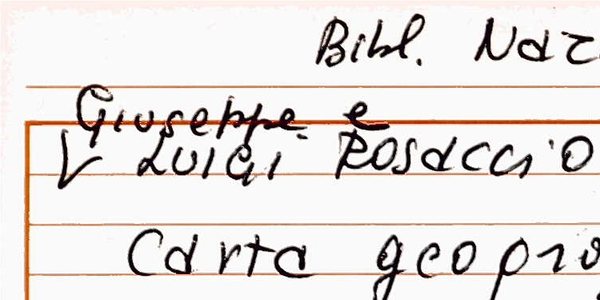 Bibl. Naz
Giuseppe e
V Luigi Rosaccio
Carta geopro